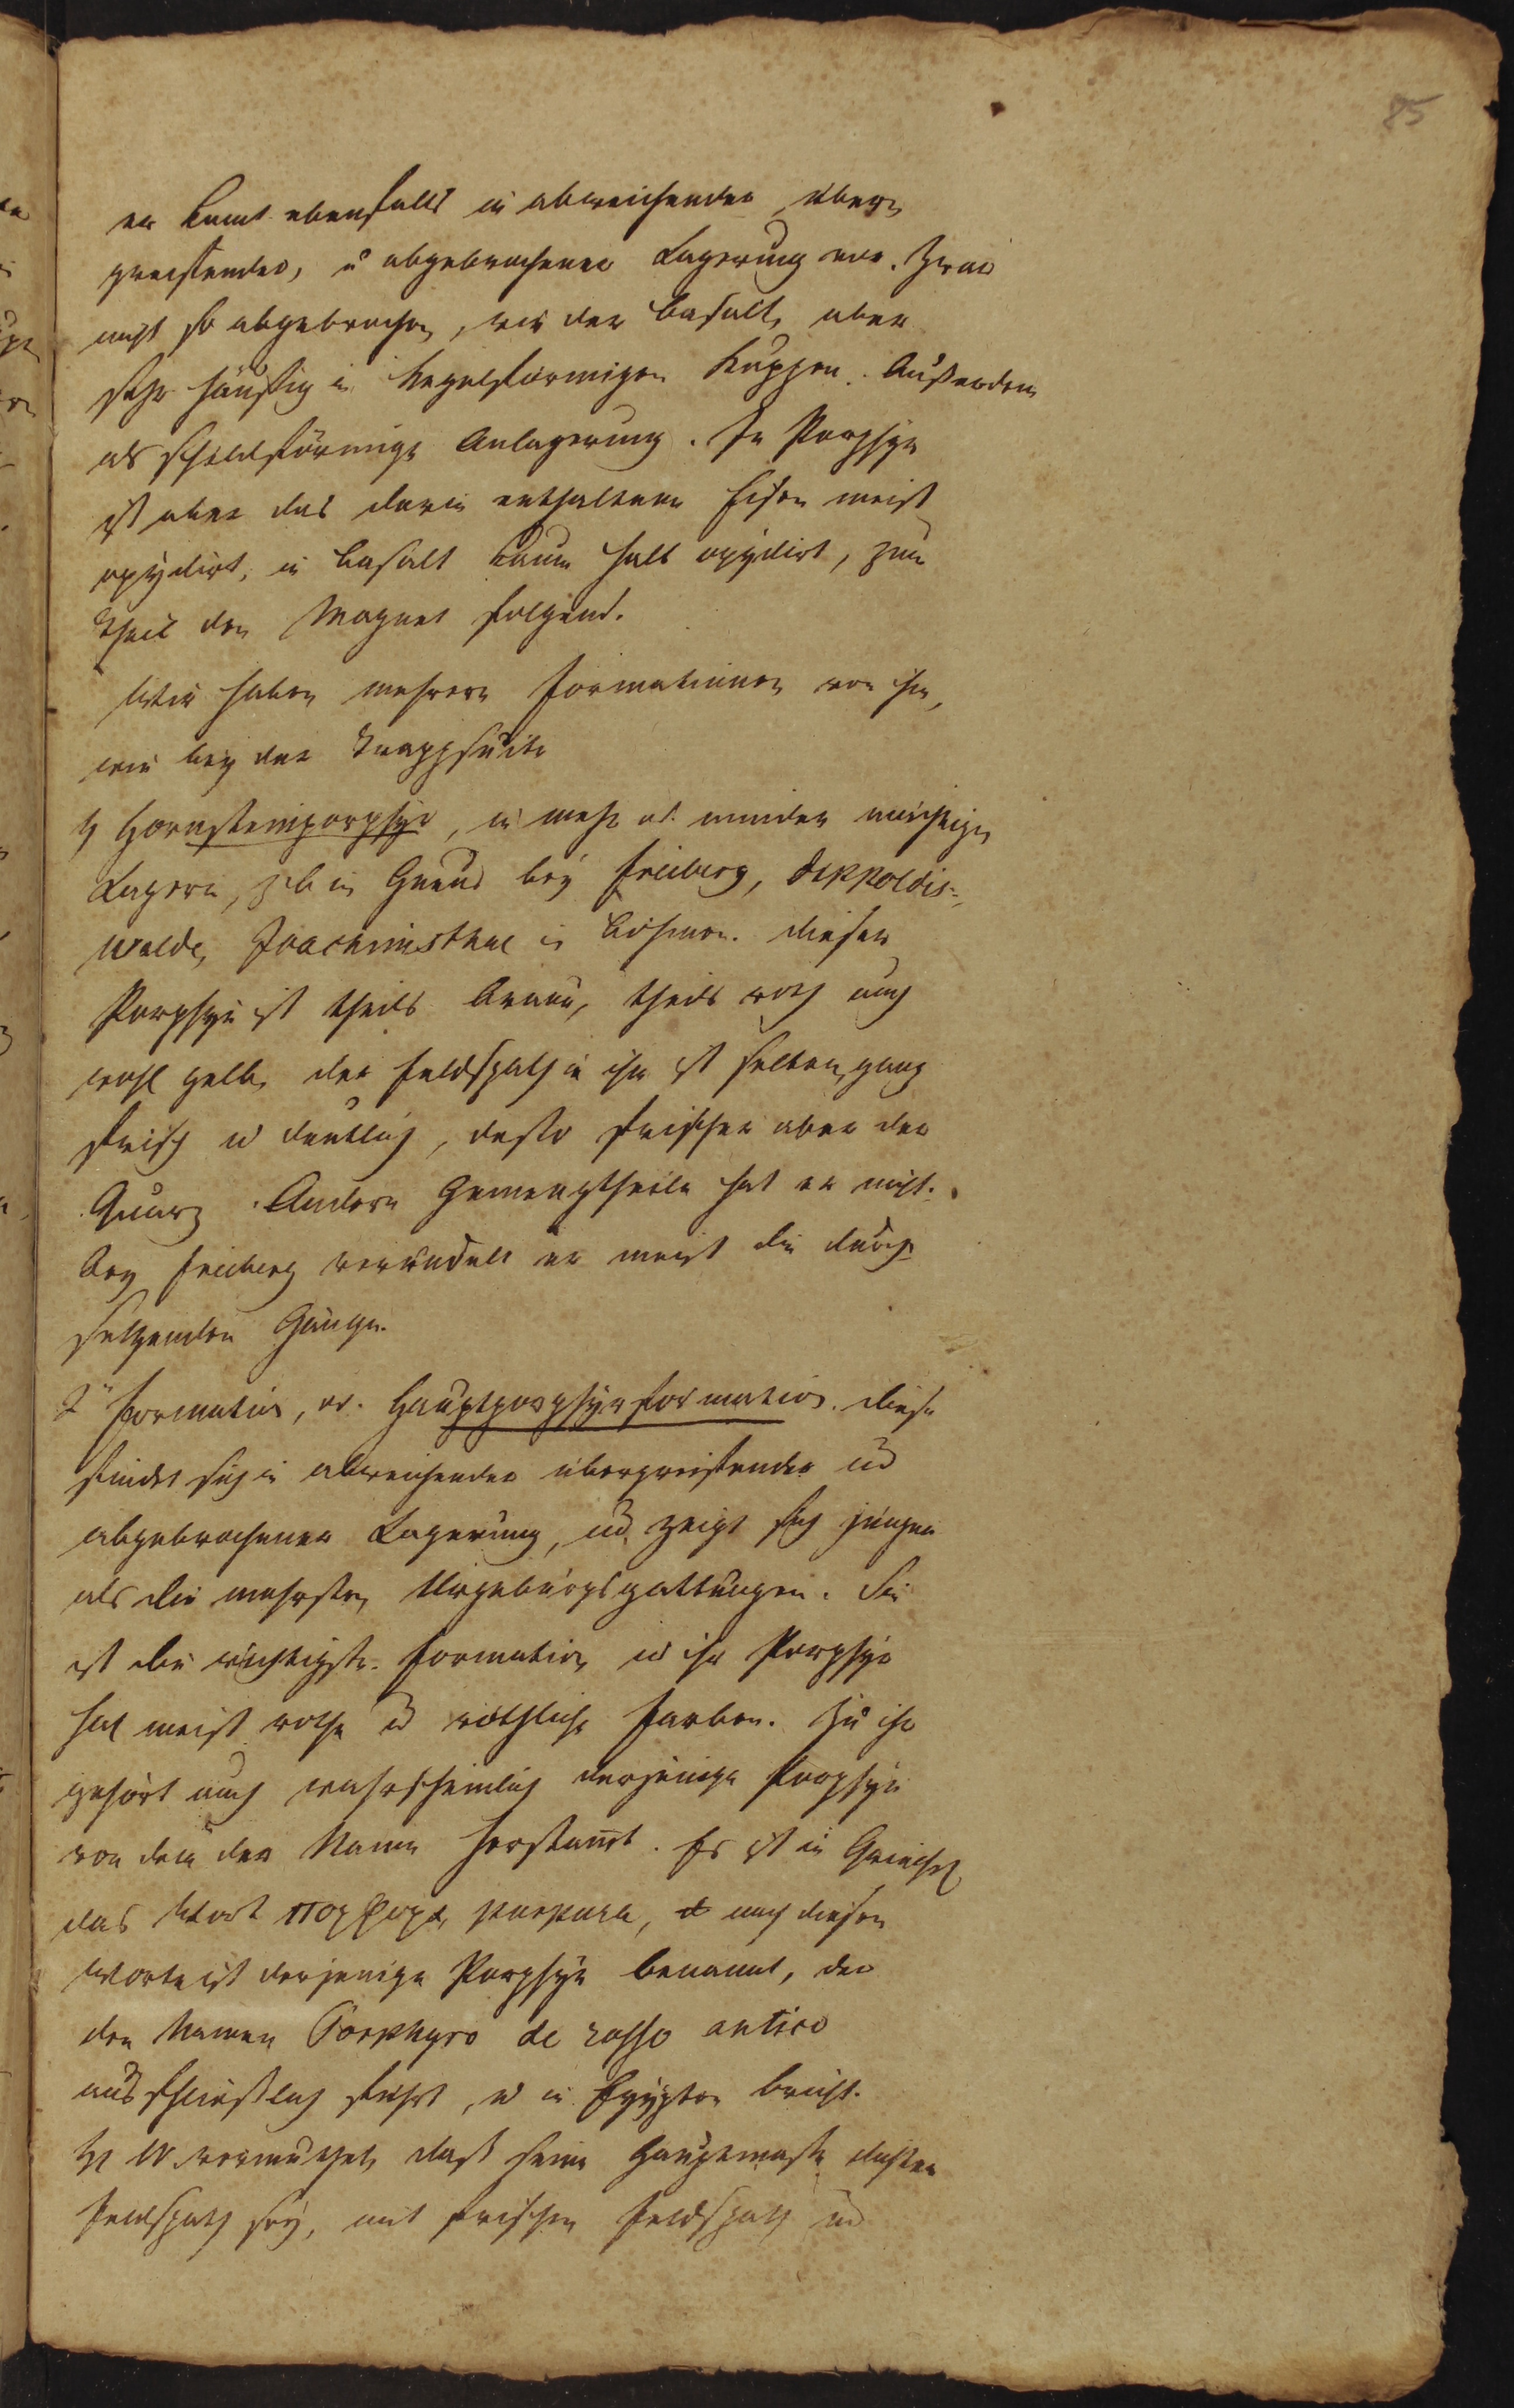 85
er kömt ebenfalls in abweichender, über=
greifender, u abgebrochener Lagerung vor. Zwar
nicht so abgebrochen, wie der Basalt, aber
sehr häufig in kegelförmigen Kuppen. Außerdem
als schildförmige Anlagerung. Im Porphyr
ist aber das darin enthaltene Eisen meist
oxydirt, im Basalt kaum halb oxydirt, zum
Theil den Magnet folgend.
Wir haben mehrere Formationen von ihm,
wie bey der Trappsuite
1) Hornsteinporphyr, in mehr od. minder mächtigen
Lagern, z. b in Grund bey Freiberg, Dippoldis=
walde, Joachimsthal in Böhmen. Dieser
Porphyr ist theils braun, theils roth auch
wohl gelb, der Feldspath in ihm ist selten ganz
frisch u deutlich, desto frischer aber der
Quarz. Andere Gemengtheile hat er nicht.
Bey Freiberg veredelt er meist die durch=
setzenden Gänge.
2te Formation, od. Hauptporphyrformation. Diese
findet sich in abweichender übergreifender und
abgebrochener Lagerung, und zeigt sich jünger
als die mehrsten Urgebürgsgattungen. Sie
ist die wichtigste Formation, u ihr Porphyr
hat meist rothe und röthliche Farben. Zu ihr
gehört auch wahrscheinlich derjenige Porphyr
von dem der Name herstamt. Es ist im Griechsch
das Wort πορφυρα, purpura, nach diesem
Worte ist derjenige Porphyr benannt, der
den Namen Porphyro de rosso antico
ausschließlich führt, u in Egypten bricht.
H W. vermuthet, daß seine Hauptmasse dichter
Feldspath sey, mit frischem Feldspath und